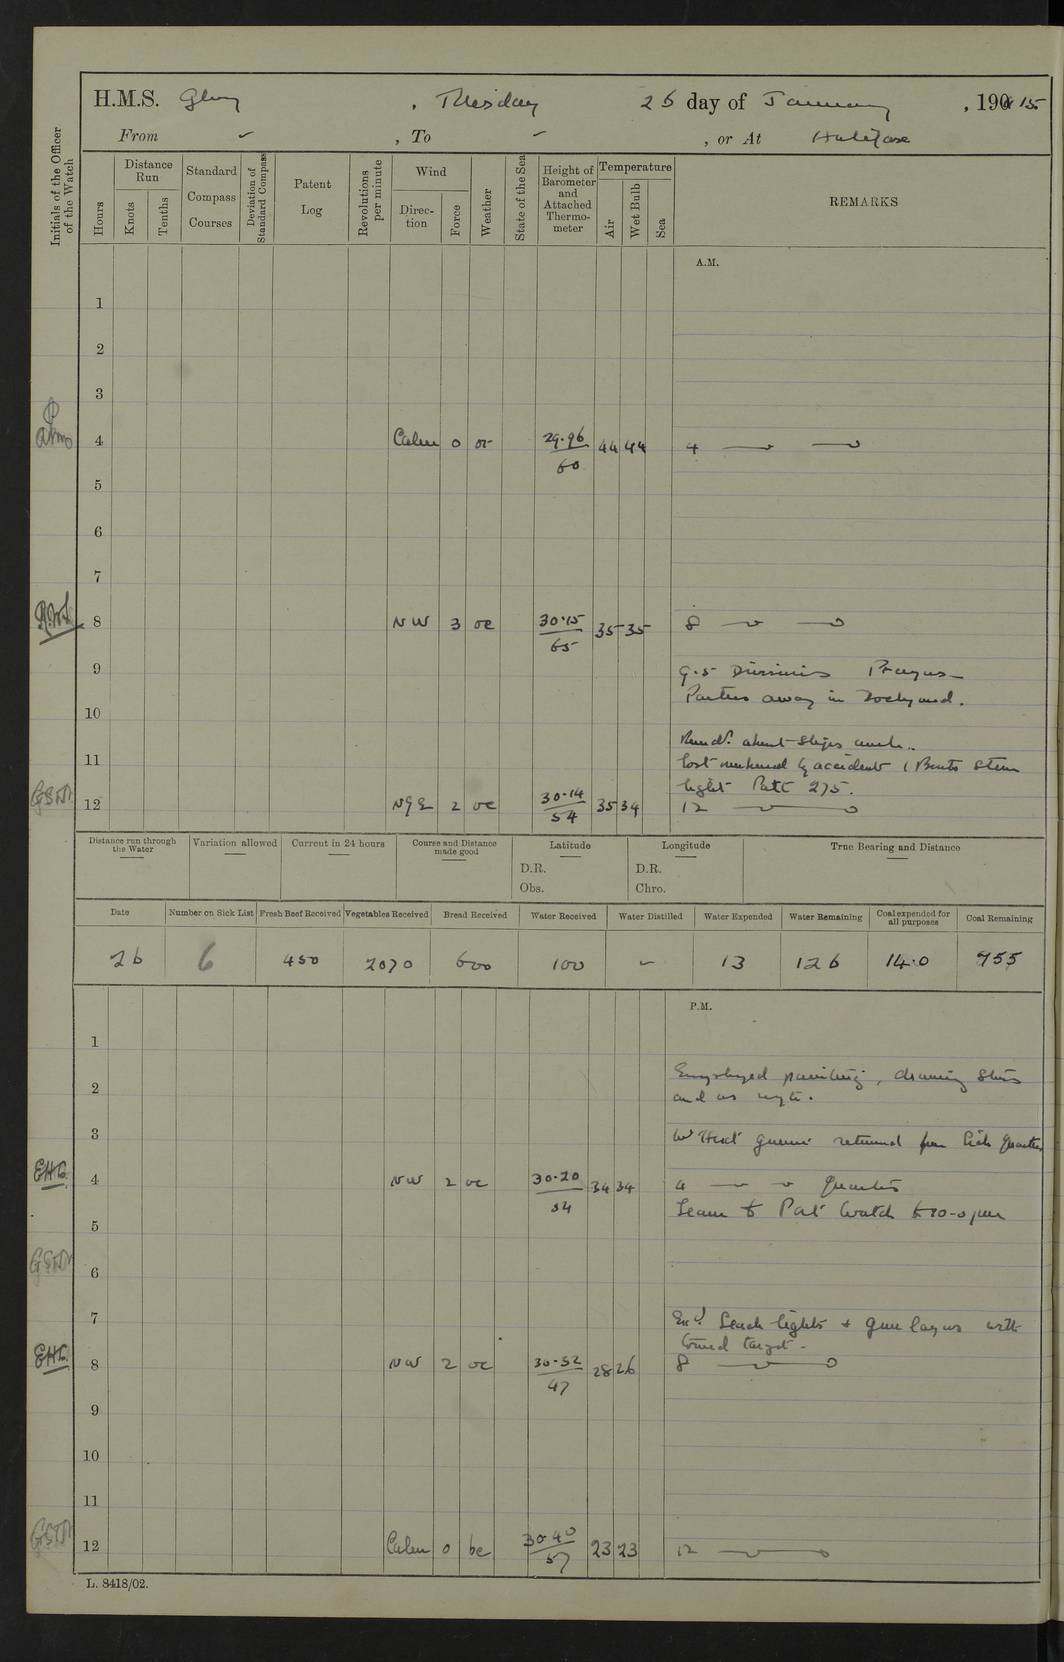 H.M.S. Glory , Tuesday 26 day of January , 190 15
From ✓ , To ✓ , or At Halifax
Initials of the Officer of the Watch
Hours
Distance Run
Knots
Tenths
Standard Compass Courses
Deviation of Standard Compass
Patent Log
Revolutions per minute
Wind
Direction
Force
Weather
State of the Sea
Height of Barometer and Attached Thermometer
Temperature
Air
Wet Bulb
Sea
REMARKS
A.M.
1
2
3
4 Calm 0 or 29.96/60 44 44 4
5
6
7
8 NW 3 oc 30.15/65 35 35 8
9 9.5 Divisions Prayers
Parties away in Dockyard.
10
Hands about Ships
11 lost overboard by accident 1 Boats Stern
light Patt 275.
12 2 oc 30.14/54 35 34 12
Distance run through the Water
Variation allowed
Current in 24 hours
Course and Distance made good
Latitude
D.R.
Obs.
Longitude
D.R.
Chro.
True Bearing and Distance
Date Number on Sick List Fresh Beef Received Vegetables Received Bread Received Water Received Water Distilled Water Expended Water Remaining Coal expended for all purposes Coal Remaining
26 6 450 2070 600 100 ~ 13 126 14.0 955
P.M.
1
2 Employed painting, drawing Stores
and as reqte.
3 returned from Sick Quarters
4 NW 2 oc 30.20/54 34 34 4 Quarters
Leave to Port Watch to 10-0 pm
5
6
7
Exd Search lights & gun layers with
towed target
8 NW 2 oc 30.32/47 28 26 8
9
10
11
12 Calm 0 bc 30.40/57 23 23 12
L. 8418/02.